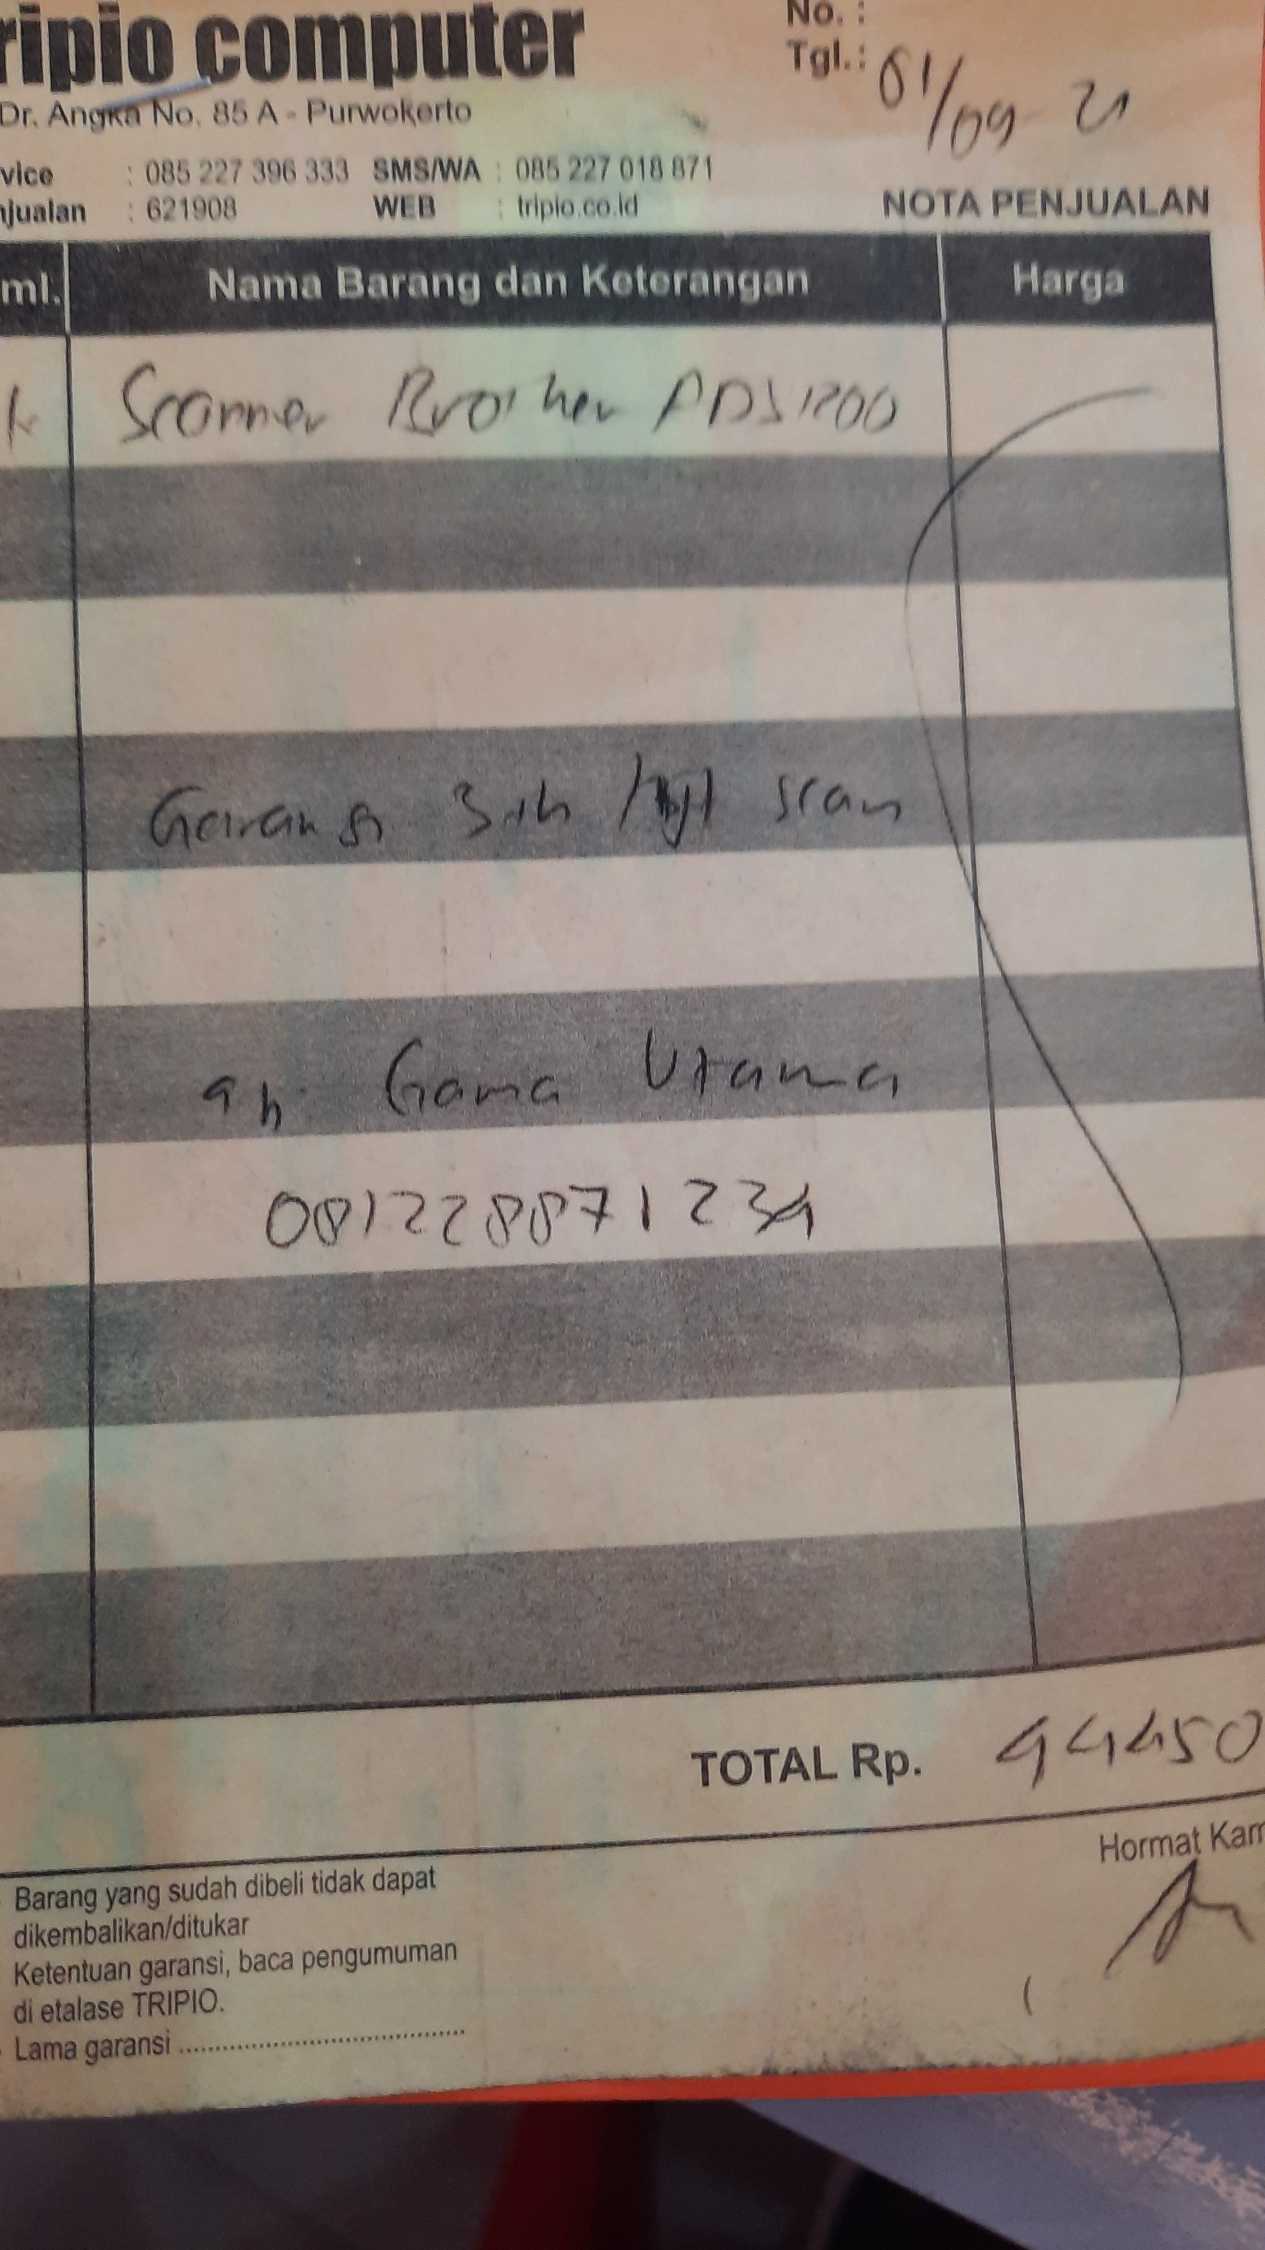 ripio computer
No. :
Tgl.: 01/09 21
Dr. Angka No. 85 A - Purwokerto
vice : 085 227 396 333 SMS/WA : 085 227 018 871
njualan : 621908 WEB : tripio.co.id
NOTA PENJUALAN
ml. Nama Barang dan Keterangan Harga
Scanner Brother ADS1200
Garansi 3 th / scan
an. Gama Utama
081228871234
TOTAL Rp. 44450
Hormat Kam
Barang yang sudah dibeli tidak dapat
dikembalikan/ditukar
Ketentuan garansi, baca pengumuman
di etalase TRIPIO.
Lama garansi ........................................
(